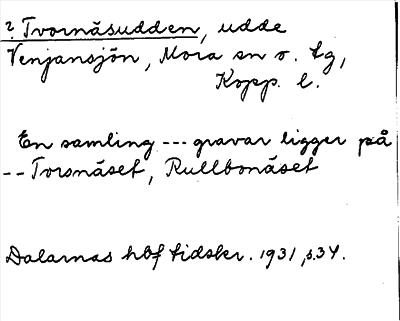 ? Tvornäsudden, udde
Venjansjön, Mora sn o. tg,
Kopp. l.
En samling --- gravar ligger på
-- Torsnäset, Rullbonäset
Dalarnas hbf tidskr. 1931, s.34.